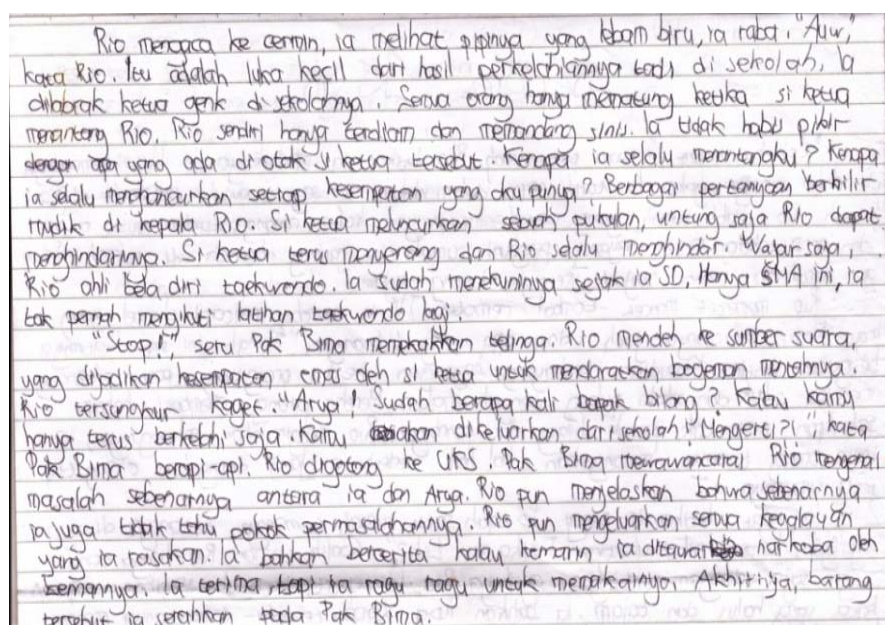 Rio mengaca ke cermin, ia melihat pipinya yang lebam biru, ia raba. "Auw,"
kata Rio. Itu adalah luka kecil dari hasil perkelahiannya tadi di sekolah, Ia
dilabrak ketua genk di sekolahnya. Semua orang hanya mematung ketika si ketua
menantang Rio. Rio sendiri hanya terdiam dan memandang sinis. Ia tidak habis pikir
dengan apa yang ada di otak si ketua tersebut Kenapa ia selalu menantangku? Kenapa
ia selalu menghancurkan setiap kesempatan yang aku punya? Berbagai pertanyaan berhilir
mudik di kepala Rio. Si ketua meluncurkan sebuah pukulan, untung saja Rio dapat
menghindarinya. Si ketua terus menyerang dan Rio selalu menghindar. Wajar saja,
Rio ahli bela diri taekwondo. Ia sudah menekuninya sejak ia SD, Hanya SMA ini, ia
tak pernah mengikuti latihan taekwondo lagi.
"Stop!!," seru Pak Bima memekakkan telinga. Rio menoleh ke sumber suara,
yang dijadikan kesempatan emas oleh si ketua untuk mendaratkan bogeman mentahnya.
Rio tersungkur kaget. "Arya! Sudah berapa kali bapak bilang? Kalau kamu
hanya terus berkelahi saja. Kamu akan dikeluarkan dari sekolah! Mengerti?!" kata
Pak Bima berapi-api. Rio digotong ke UKS. Pak Bima mewawancarai Rio mengenai
masalah sebenarnya antara ia dan Arya. Rio pun menjelaskan bahwa sebenarnya
ia juga tidak tahu pokok permasalahannya. Rio pun mengeluarkan semua kegalauan
yang ia rasakan. Ia bahkan bercerita kalau kemarin ia ditawari narkoba oleh
temannya. Ia terima, tapi ia ragu ragu untuk memakainya. Akhirnya, barang
tersebut ia serahkan pada Pak Bima.